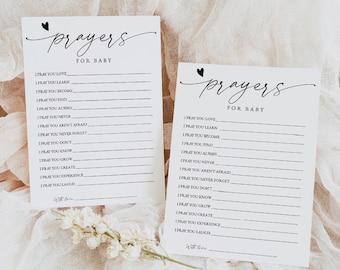 prayers
FOR BABY
I PRAY YOU LOVE
I PRAY YOU LEARN
I PRAY YOU BECOME
I PRAY YOU FIND
I PRAY YOU ALWAYS
I PRAY YOU NEVER
I PRAY YOU AREN'T AFRAID
I PRAY YOU NEVER FORGET
I PRAY YOU DON'T
I PRAY YOU KNOW
I PRAY YOU GROW
I PRAY YOU CREATE
I PRAY YOU EXPERIENCE
I PRAY YOU LAUGH
With love,
prayers
FOR BABY
I PRAY YOU LOVE
I PRAY YOU LEARN
I PRAY YOU BECOME
I PRAY YOU FIND
I PRAY YOU ALWAYS
I PRAY YOU NEVER
I PRAY YOU AREN'T AFRAID
I PRAY YOU NEVER FORGET
I PRAY YOU DON'T
I PRAY YOU KNOW
I PRAY YOU GROW
I PRAY YOU CREATE
I PRAY YOU EXPERIENCE
I PRAY YOU LAUGH
With love,